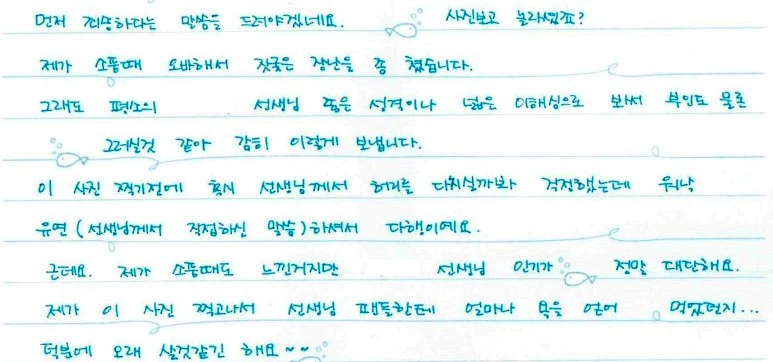 먼저 죄송하다는 말씀을 드려야겠네요. 사진보고 놀라셨죠?
제가 소풍때 오바해서 짓궂은 장난을 좀 쳤습니다.
그래도 평소의 선생님 좋은 성격이나 넓은 이해심으로 봐서 부인도 물론
그러실것 같아 감히 이렇게 보냅니다.
이 사진 찍기전에 혹시 선생님께서 허리를 다치실까봐 걱정했는데 워낙
유연(선생님께서 직접하신 말씀)하셔서 다행이예요.
근데요. 제가 소풍때도 느낀거지만 선생님 인기가 정말 대단해요.
제가 이 사진 찍고나서 선생님 팬들한테 얼마나 욕을 얻어 먹었던지...
덕분에 오래 살것같긴 해요~~